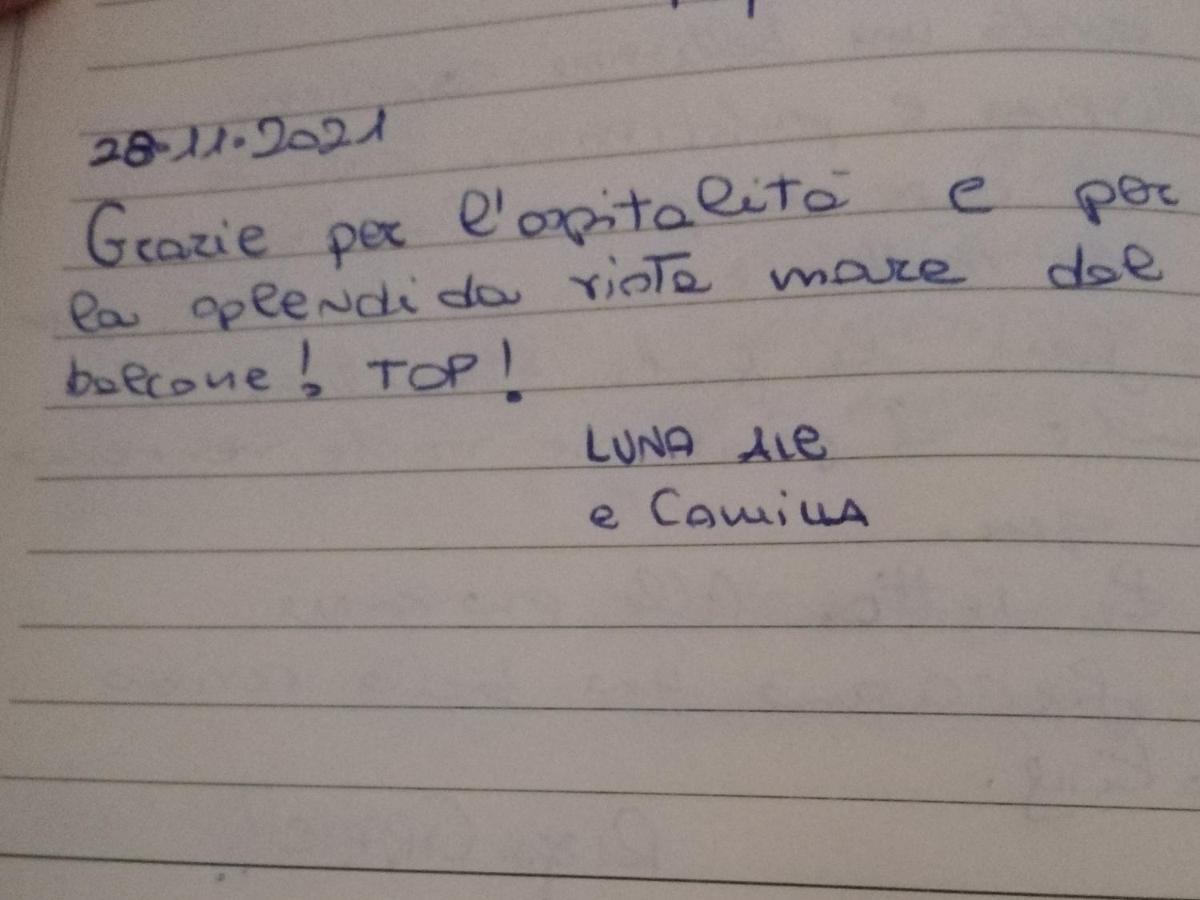 28.11.2021
Grazie per l'ospitalità e per
la splendida vista mare dal
balcone! TOP!
LUNA Ale
e Camilla